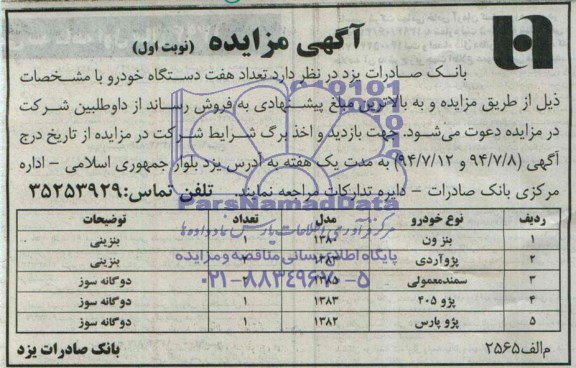 آگهی مزایده (نوبت اول)
بانک صادرات یزد در نظر دارد تعداد هفت دستگاه خودرو با مشخصات
ذیل از طریق مزایده و به بالاترین مبلغ پیشنهادی به فروش رساند از داوطلبین شرکت
در مزایده دعوت می‌شود. جهت بازدید و اخذ برگ شرایط شرکت در مزایده از تاریخ درج
آگهی (۹۴/۷/۸ و ۹۴/۷/۱۲) به مدت یک هفته به آدرس یزد بلوار جمهوری اسلامی - اداره
مرکزی بانک صادرات - دایره تدارکات مراجعه نمایند. تلفن تماس: ۳۵۲۵۳۹۲۹
ParsNamadData
مرکز فرآوری اطلاعات پارس نماد داده ها
پایگاه اطلاع رسانی مناقصه و مزایده
۰۲۱-۸۸۳۴۹۶۷۰-۵
ردیف نوع خودرو مدل تعداد توضیحات
۱ بنز ون ۱۳۸۰ ۱ بنزینی
۲ پژوآردی بنزینی
۳ سمندمعمولی ۱۳۸۵ دوگانه سوز
۴ پژو ۴۰۵ ۱۳۸۳ ۱ دوگانه سوز
۵ پژو پارس ۱۳۸۲ ۱ دوگانه سوز
م‌الف۲۵۶۵ بانک صادرات یزد